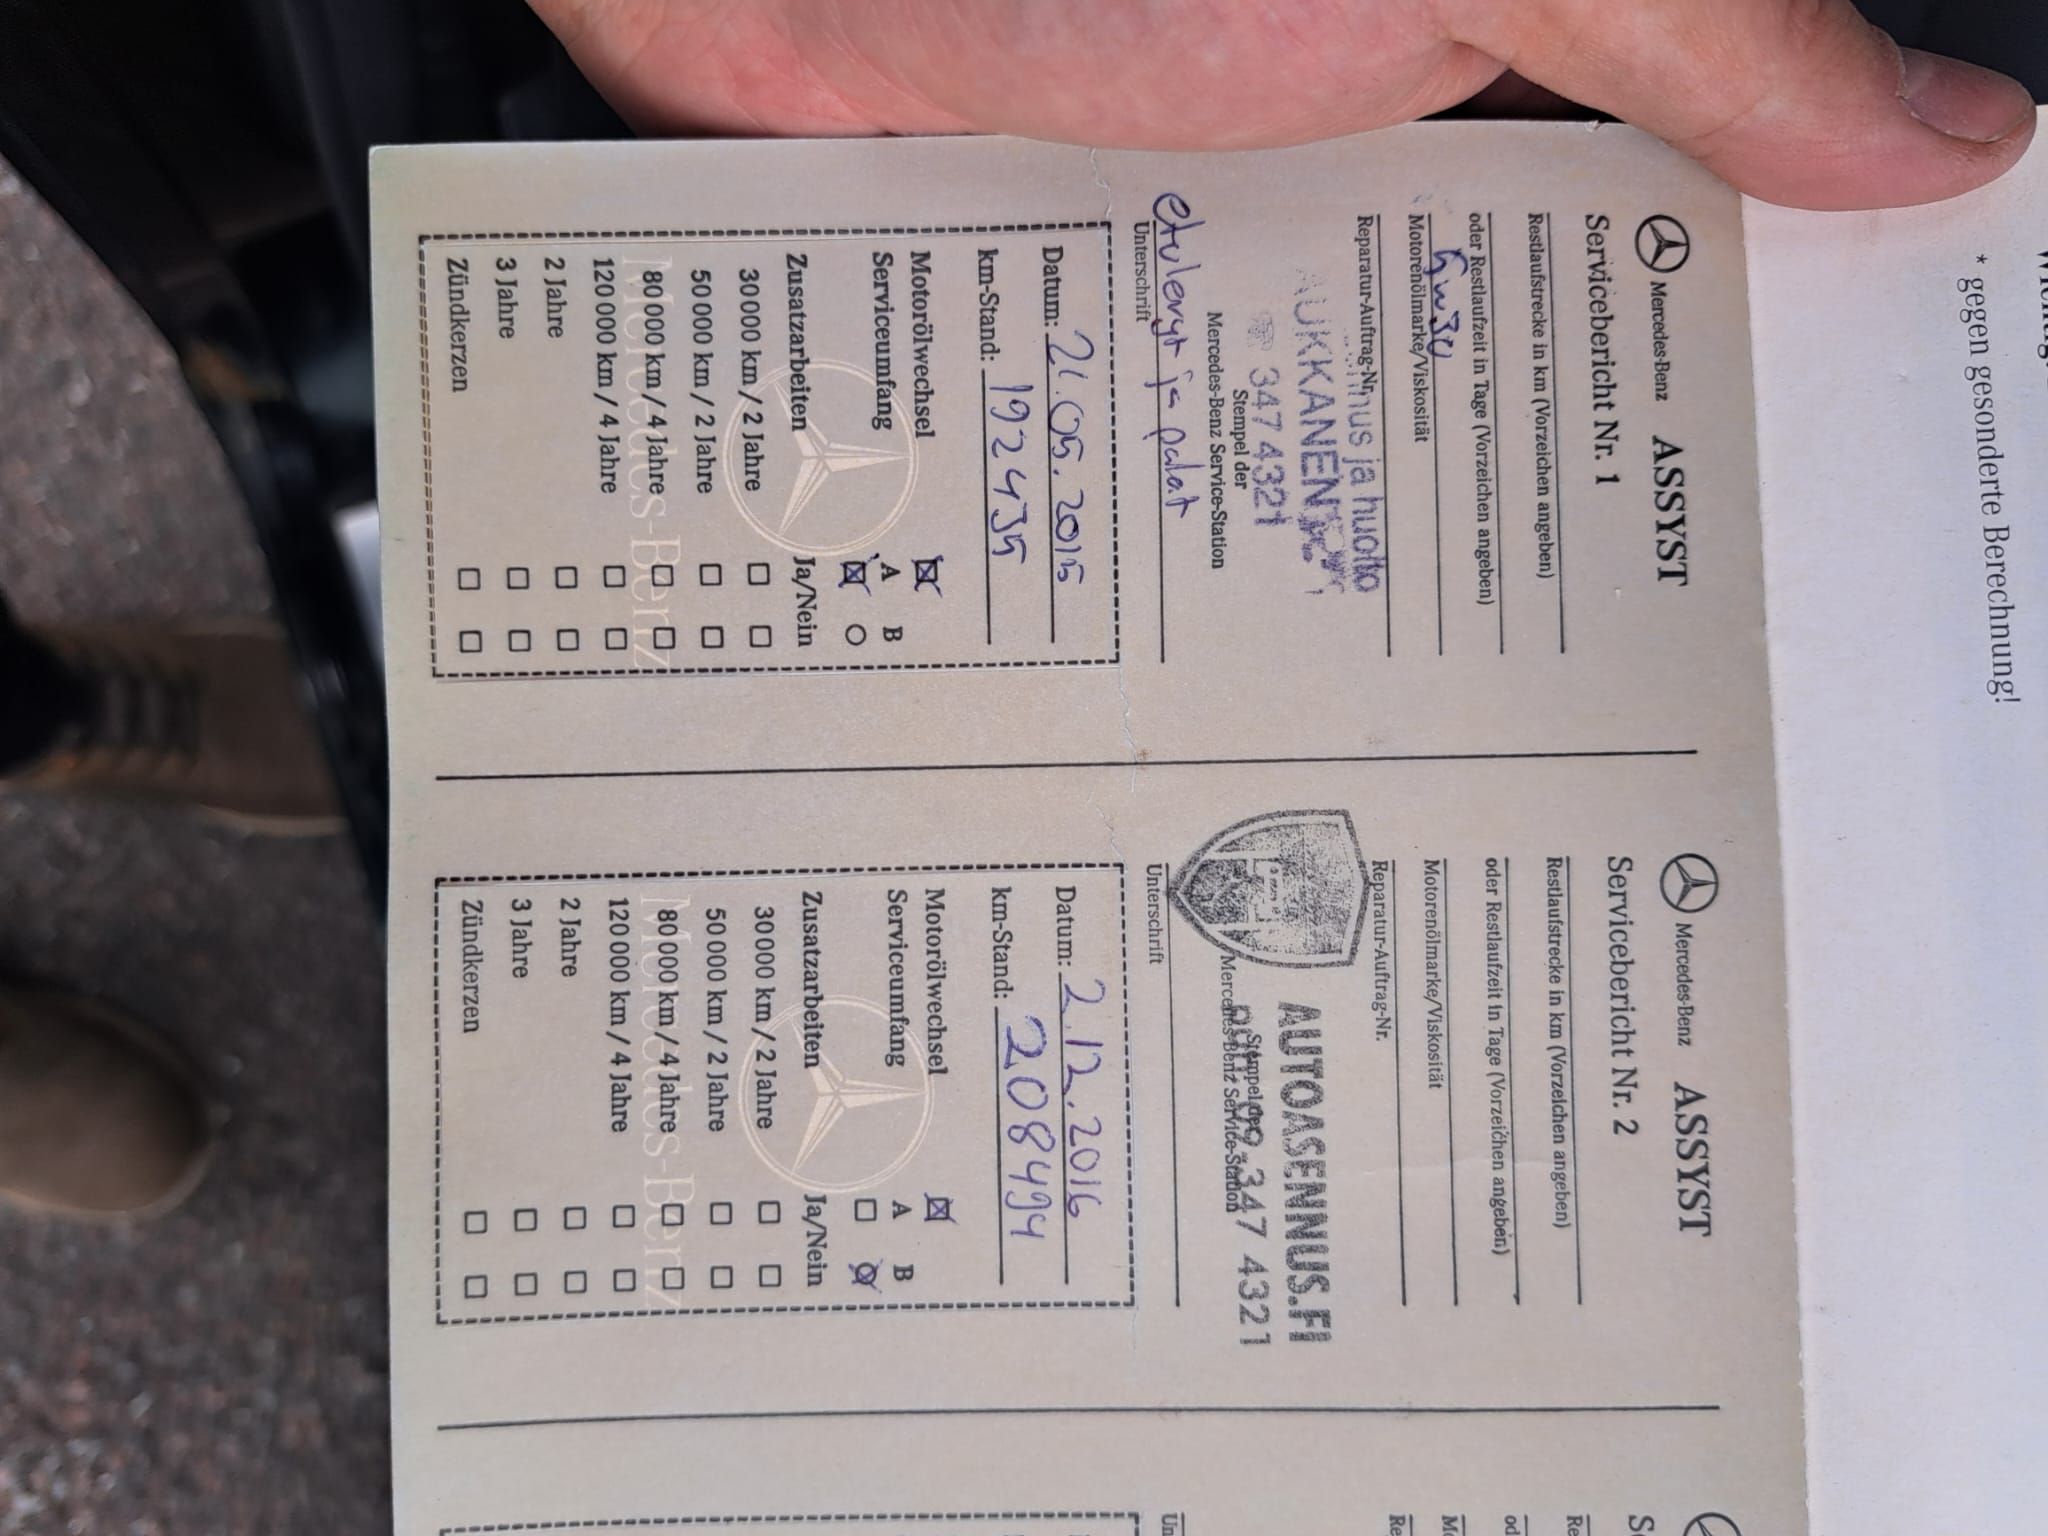 * gegen gesonderte Berechnung!
Mercedes-Benz ASSYST
Servicebericht Nr. 1
Restlaufstrecke in km (Vorzeichen angeben)
oder Restlaufzeit in Tage (Vorzeichen angeben)
5w30
Motorenölmarke/Viskosität
Reparatur-Auftrag-Nr.
ja huolto
AUKKANEN
347 4321
Stempel der
Mercedes-Benz Service-Station
etulevyt ja palat
Unterschrift
Datum: 21.05.2015
km-Stand: 192435
Motorölwechsel
Serviceumfang A B
Zusatzarbeiten Ja/Nein
30000 km / 2 Jahre
50000 km / 2 Jahre
80000 km / 4 Jahre
Mercedes-Benz
120000 km / 4 Jahre
2 Jahre
3 Jahre
Zündkerzen
Mercedes-Benz ASSYST
Servicebericht Nr. 2
Restlaufstrecke in km (Vorzeichen angeben)
oder Restlaufzeit in Tage (Vorzeichen angeben)
Motorenölmarke/Viskosität
Reparatur-Auftrag-Nr.
AUTOASENNUS.FI
puh. 09-347 4321
Stempel der
Mercedes-Benz Service-Station
Unterschrift
Datum: 2.12.2016
km-Stand: 208494
Motorölwechsel
Serviceumfang A B
Zusatzarbeiten Ja/Nein
30000 km / 2 Jahre
50000 km / 2 Jahre
80000 km / 4 Jahre
Mercedes-Benz
120000 km / 4 Jahre
2 Jahre
3 Jahre
Zündkerzen